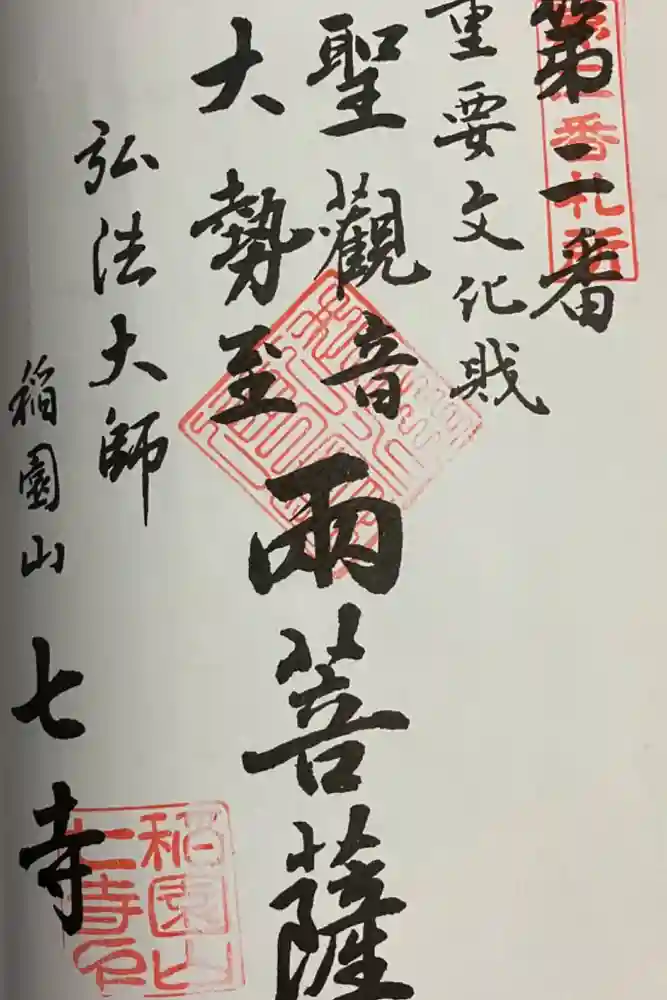 第二番
重要文化財
聖觀音
大勢至
両菩薩
弘法大師
稲園山
七寺
番札所
稲園山
七寺印